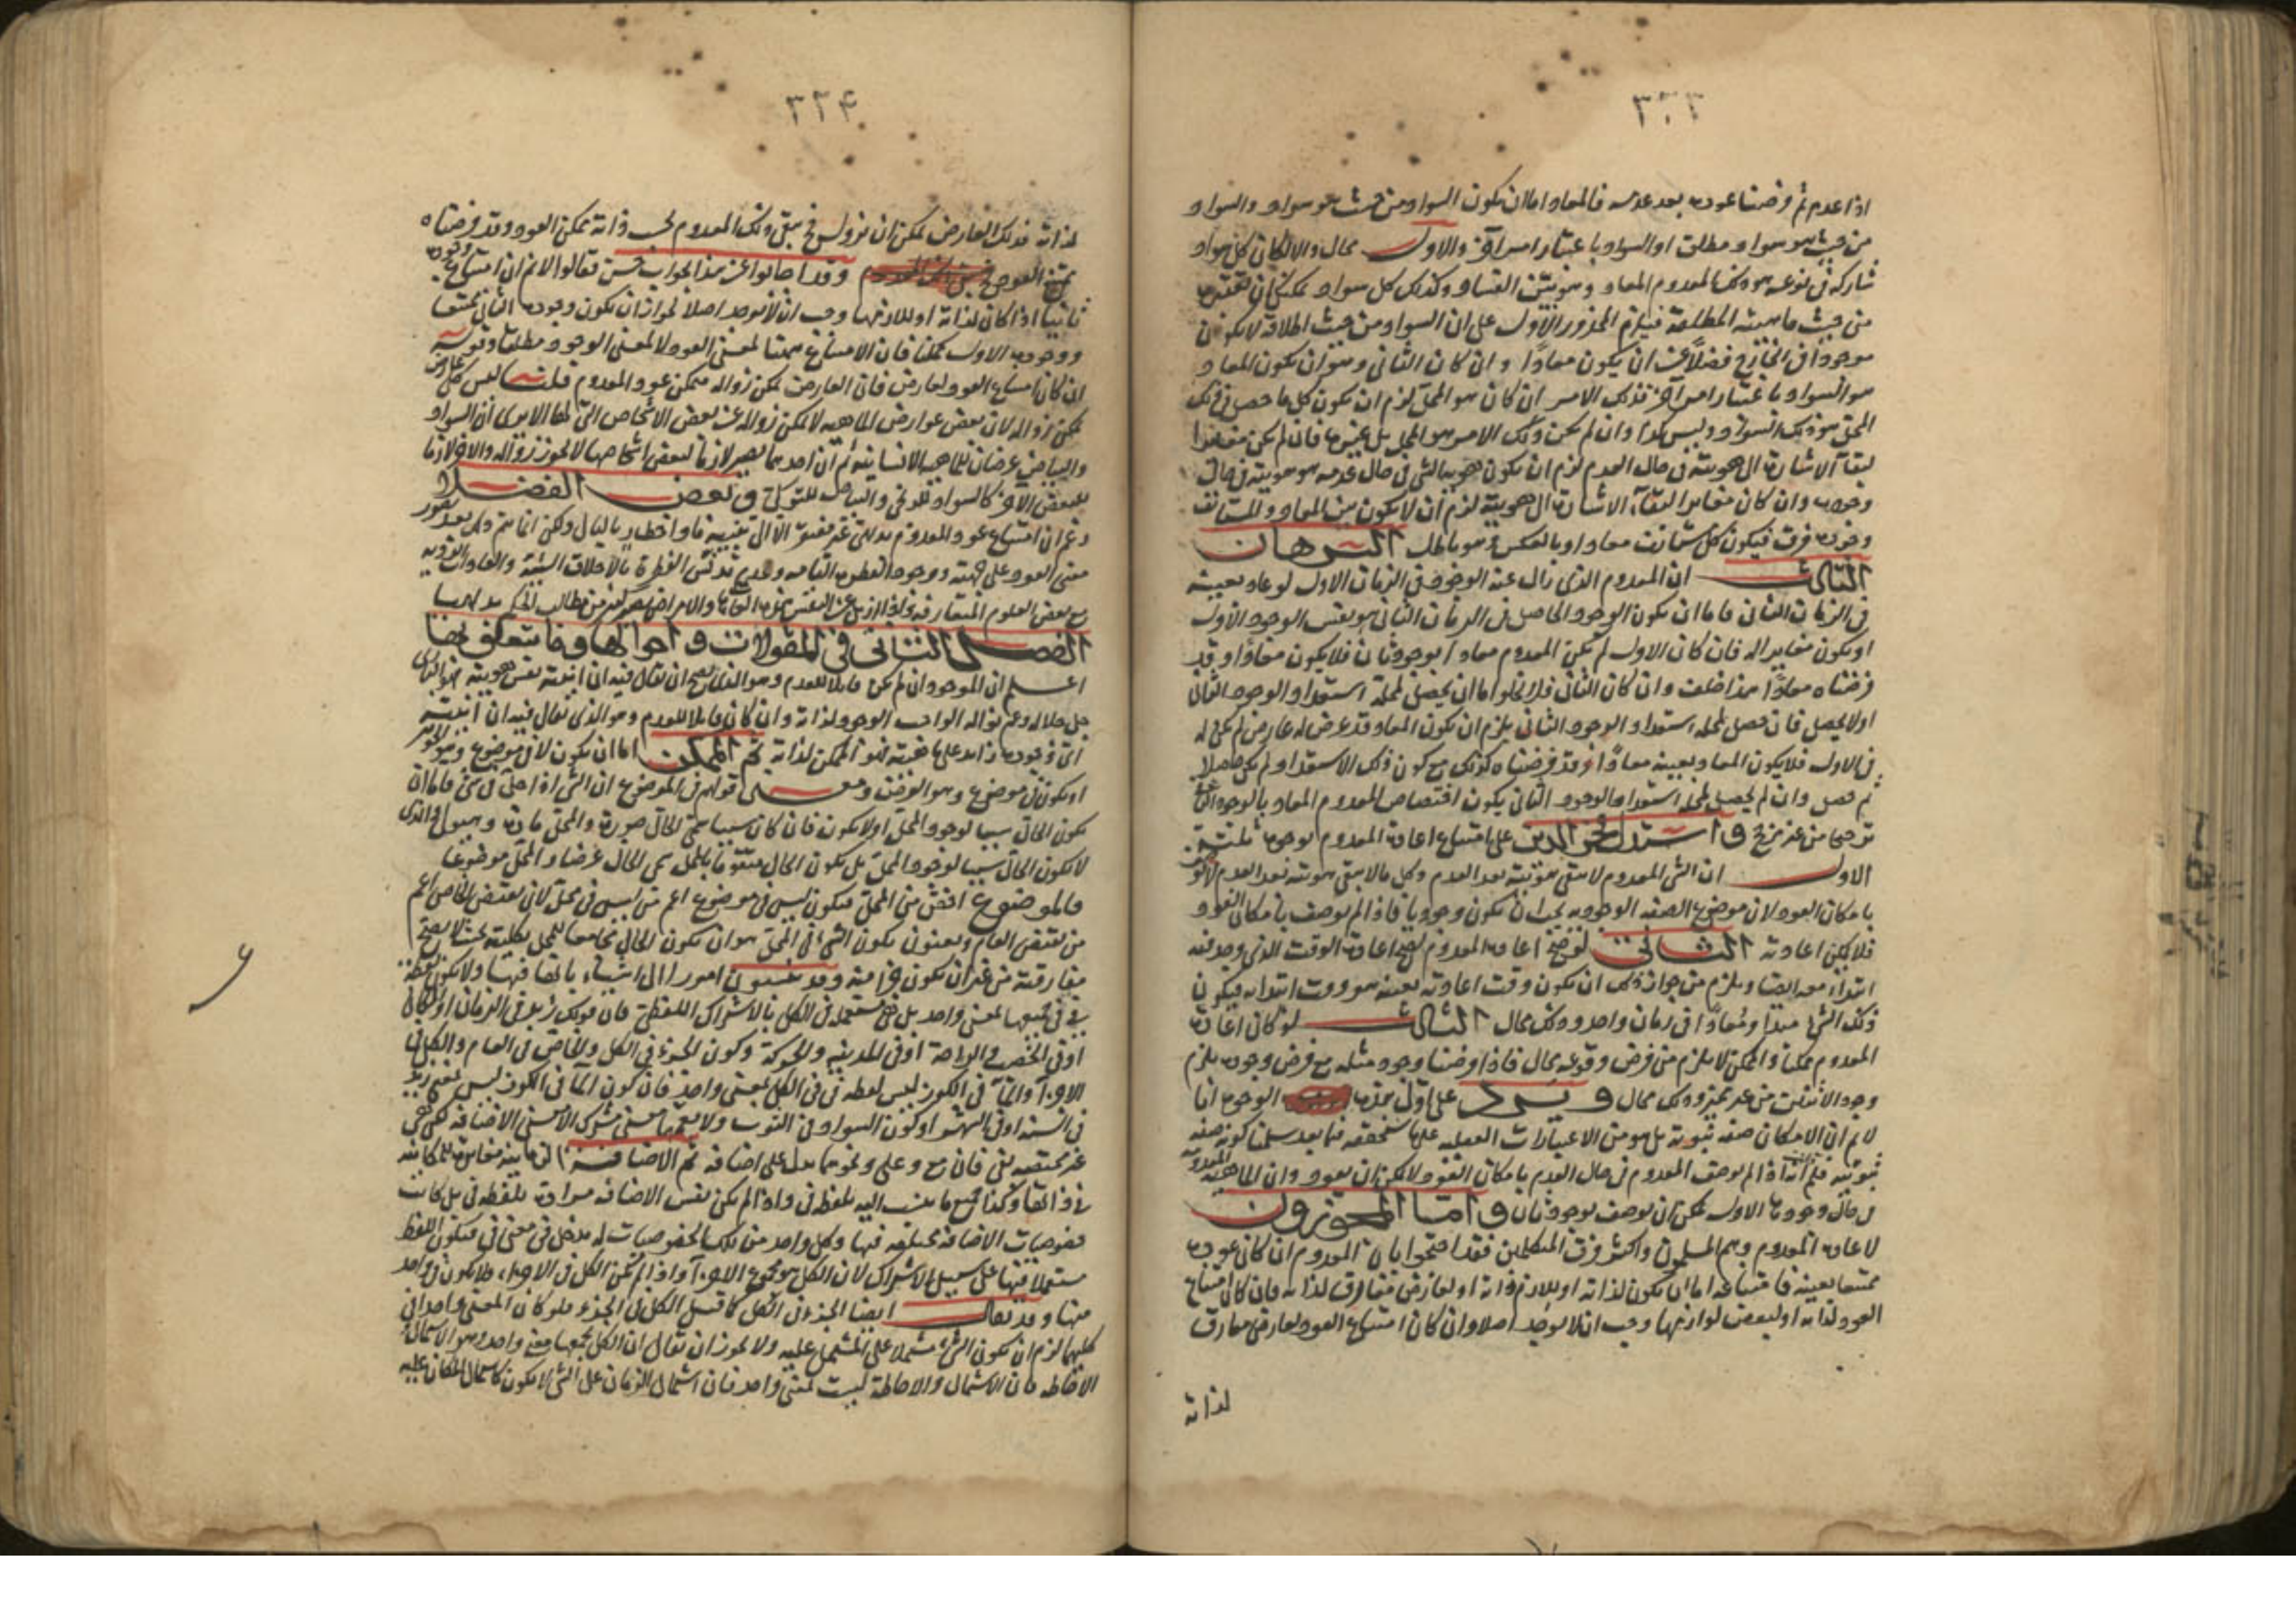 ٣٢٣
اذا عدم ثم فرضنا عوده بعد عدمه فالمعاد اما ان يكون السواد من حيث هو سواد والسواد
من حيث هو سواد مطلق او السواد باعتبار امر آخر والاول محال والا لكان كل سواد
شاركه في نوعه هو ذلك المعدوم المعاد وهو بين الفساد وكذلك كل سواد يمكن ان
من حيث ماهيته المطلقة فيلزم المحذور الاول على ان السواد من حيث اطلاقه لا يكون
موجودا في الخارج فضلا عن ان يكون معادا وان كان الثاني وهو ان يكون المعاد
هو السواد باعتبار امر آخر فذلك الامر ان كان هو المحل لزم ان يكون كل ما حصل في ذلك
المحل هو ذلك السواد وليس كذا وان لم يكن ذلك الامر هو المحل بل غيره فان لم يكن مغايرا
لبقاء الاشارة الى هويته في حال العدم لزم ان يكون هوية الشئ في حال عدمه هو هويته في حال
وجوده وان كان مغايرا لبقاء الاشارة الى هويته لزم ان لا يكون بين المعاد والمستانف
وجوده فرق فيكون كل مستانف معادا وبالعكس وهو باطل البرهان
الثالث ان المعدوم الذي زال عنه الوجود في الزمان الاول لو عاد بعينه
في الزمان الثاني فاما ان يكون الوجود الحاصل في الزمان الثاني هو بعينه الوجود الاول
او يكون مغايرا له فان كان الاول لم يكن المعدوم معادا بوجود ثان فلا يكون معادا وقد
فرضناه معادا هذا خلف وان كان الثاني فلا يخلوا اما ان يحصل لمحله استعداد الوجود الثاني
او لا يحصل فان حصل لمحله استعداد الوجود الثاني يلزم ان يكون المعاد قد عرض له عارض لم يكن له
في الاول فلا يكون المعاد بعينه معادا وقد فرضناه كذلك مع كون ذلك الاستعداد لم يكن حاصلا
ثم حصل وان لم يحصل لمحله استعداد الوجود الثاني يكون اختصاص المعدوم المعاد بالوجود الثاني
ترجيحا من غير مرجح واستدل فخر الدين على امتناع اعادة المعدوم بوجوه ثلثة
الاول ان الشئ المعدوم لا يبقى هويته بعد العدم وكل ما لا يبقى هويته بعد العدم لا يوصف
بامكان العود لان موضوع الصفة الوجودية يجب ان يكون وجوديا فاذا لم يوصف بامكان العود
فلا يمكن اعادته الثاني لو صح اعادة المعدوم لصح اعادة الوقت الذي وجد فيه
ابتداء معه ايضا ويلزم من جواز ذلك ان يكون وقت اعادته بعينه هو وقت ابتدائه فيكون
ذلك الشئ مبدا ومعادا في زمان واحد وذلك محال الثالث لو كان اعادة
المعدوم ممكنا والممكن لا يلزم من فرض وقوعه محال فاذا فرضنا وجود مثله مع فرض وجوده يلزم
وجود الاثنين من غير تميز وذلك محال ويرد على اول هذه الوجوه انا
لا نم ان الامكان صفة ثبوتية بل هو من الاعتبارات العقلية على ما سنحققه فيما بعد سلمنا كونه صفة
ثبوتية فلم اذا لم يوصف المعدوم في حال العدم بامكان العود لا يمكن ان يعود وان الماهية المعدومة
في حال وجودها الاول يمكن ان يوصف بوجود ثان واما المجوزون
لاعادة المعدوم وهم المسلمون واكثر فرق المتكلمين فقد احتجوا بان المعدوم ان كان عوده
ممتنعا بعينه فامتناعه اما ان يكون لذاته او للازم ذاته او لعارض مفارق لذاته فان كان امتناع
العود لذاته او لبعض لوازمها وجب ان لا يوجد اصلا وان كان امتناع العود لعارض مفارق
لذاته
٣٢٤
لذاته فذلك العارض يمكن ان يزول فح يبقى ذلك المعدوم بحسب ذاته ممكن العود وقد فرضناه
ممتنع العود وقد اجابوا عن هذا الجواب حسن فقالوا لا نم ان امتناع وجوده
ثانيا اذا كان لذاته او للازمها وجب ان لا يوجد اصلا لجواز ان يكون وجوده الثاني ممتنعا
ووجوده الاول ممكنا فان الامتناع ههنا لمعنى العود لا لمعنى الوجود مطلقا وقوله
ان كان امتناع العود لعارض فان العارض يمكن زواله فيمكن عود المعدوم قلنا ليس كل عارض
يمكن زواله لان بعض عوارض الماهية لا يمكن زواله عن بعض الاشخاص التي لها الا يرى ان السواد
والبياض عرضان للماهية الانسانية ثم ان احدهما يصير لازما لبعض اشخاصها لا يجوز زواله والاخر لازما
للبعض الآخر كالسواد للزنجي والبياض للتركي وبعض الفضلا
زعم ان امتناع عود المعدوم بديهي غير مفتقر الا الى تنبيه ما واخطار بالبال ولكن انما يتم ذلك بعد تصور
معنى العود على جهته ووجود الفطرة التامة وعدم تدنس الفطرة بالاخلاق السيئة والعادات الردية
الفصل الثاني في المقولات واحوالها وما يتعلق بها
اعلم ان الموجود ان لم يكن قابلا للعدم وهو الذي يصح ان يقال فيه ان انيته نفس هويته فهو الباري
جل جلاله وعم نواله الواجب الوجود لذاته وان كان قابلا للعدم وهو الذي يقال فيه ان انيته
اي وجوده زائد على ماهيته فهو الممكن لذاته ثم الممكن اما ان يكون لا في موضوع وهو الجوهر
او يكون في موضوع وهو العرض ومعنى قولهم في الموضوع ان الشئ اذا حل في شئ فاما ان
يكون الحال سببا لوجود المحل او لا يكون فان كان سببا سمى الحال صورة والمحل مادة وهيولى والذي
لا يكون الحال سببا لوجود المحل بل يكون الحال متقوما بالمحل سمى الحال عرضا والمحل موضوعا
فالموضوع اخص من المحل فيكون ليس في موضوع اعم من ليس في محل لان نقيض الخاص اعم
من نقيض العام ويعنون بكون الشئ في المحل هو ان يكون الحال مجامعا للمحل بكليته بحيث لا يصح
مفارقته من غير ان يكون جزءا منه وقد ينسبون امورا الى اشياء بانها فيها ولا يكون لفظة
في في جميعها بمعنى واحد بل هي مستعملة في الكل بالاشتراك اللفظي فان قولك زيد في الزمان او المكان
او في الخصب في الراحة او في المدينة والحركة وكون الجزء في الكل والخاص في العام والكل في
الاجزاء والماء في الكوز ليس لفظة في في الكل بمعنى واحد فان كون الماء في الكوز ليس بمعنى زيد
في السنة او في الشهر او كون السواد في الثوب ولا يعمها معنى مشترك الا معنى الاضافة لكن هي
غير مختصة بفي فان مع وعلى ونحوهما يدل على اضافة ثم الاضافة الزمانية مغايرة للمكانية
في ذاتها وكذا جميع ما ينسب اليه بلفظ في واذا لم يكن نفس الاضافة مرادة بلفظة في بل كانت
خصوصيات الاضافة مختلفة فيها وكل واحد من تلك الخصوصيات له مدخل في معنى في فيكون اللفظ
مستعملا فيها على سبيل الاشتراك لان الكل هو مجموع الاجزاء واذا لم يكن الكل في الاجزاء فلا يكون في واحد
منها وقد يقال ايضا الجزء في الكل كما قيل الكل في الجزء فلو كان المعنى واحدا في
كليهما لزم ان يكون الشئ مشتملا على المشتمل عليه ولا يجوز ان يقال ان الكل يجمعها معنى واحد وهو الاشتمال او
الاحاطة فان الاشتمال والاحاطة ليست بمعنى واحد فان اشتمال الزمان على الشئ لا يكون كاشتمال المكان عليه